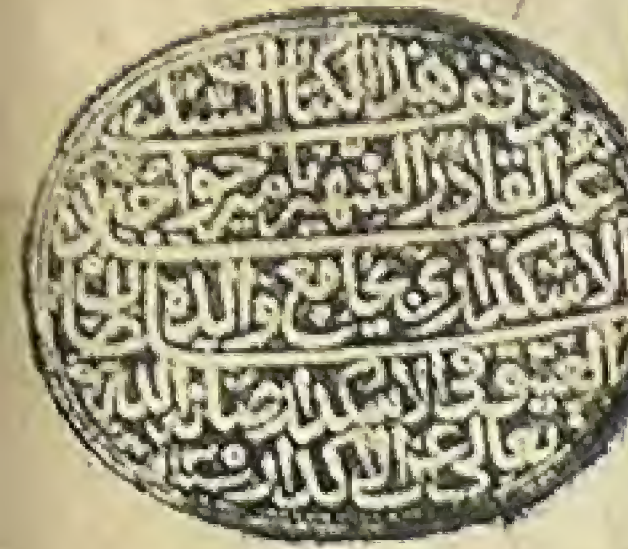 وقف هذا الكتاب
عبد القادر الشهير بامير خواجه
الاسكداري بجامع والدة
العتيق في الاسكدار صانه الله
تعالى عن الاكدار